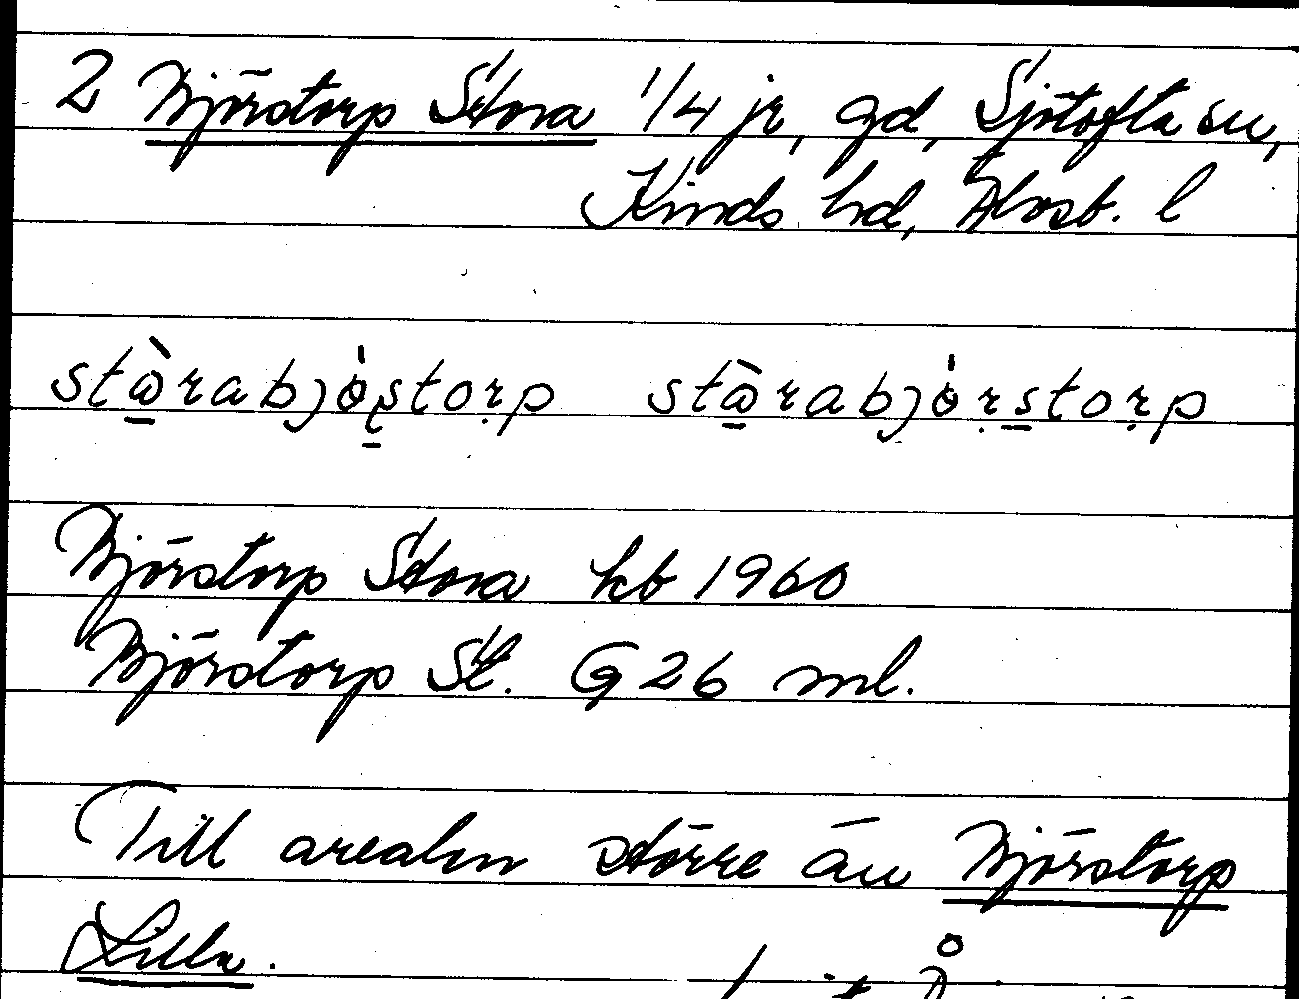 2 Björstorp Stora 1/4 jr, gd, Sjötofta sn,
Kinds hd, Älvsb. l
Björstorp Stora kb 1960
Björstorp St. G 26 ml.
Till arealen större än Björstorp
Lilla.